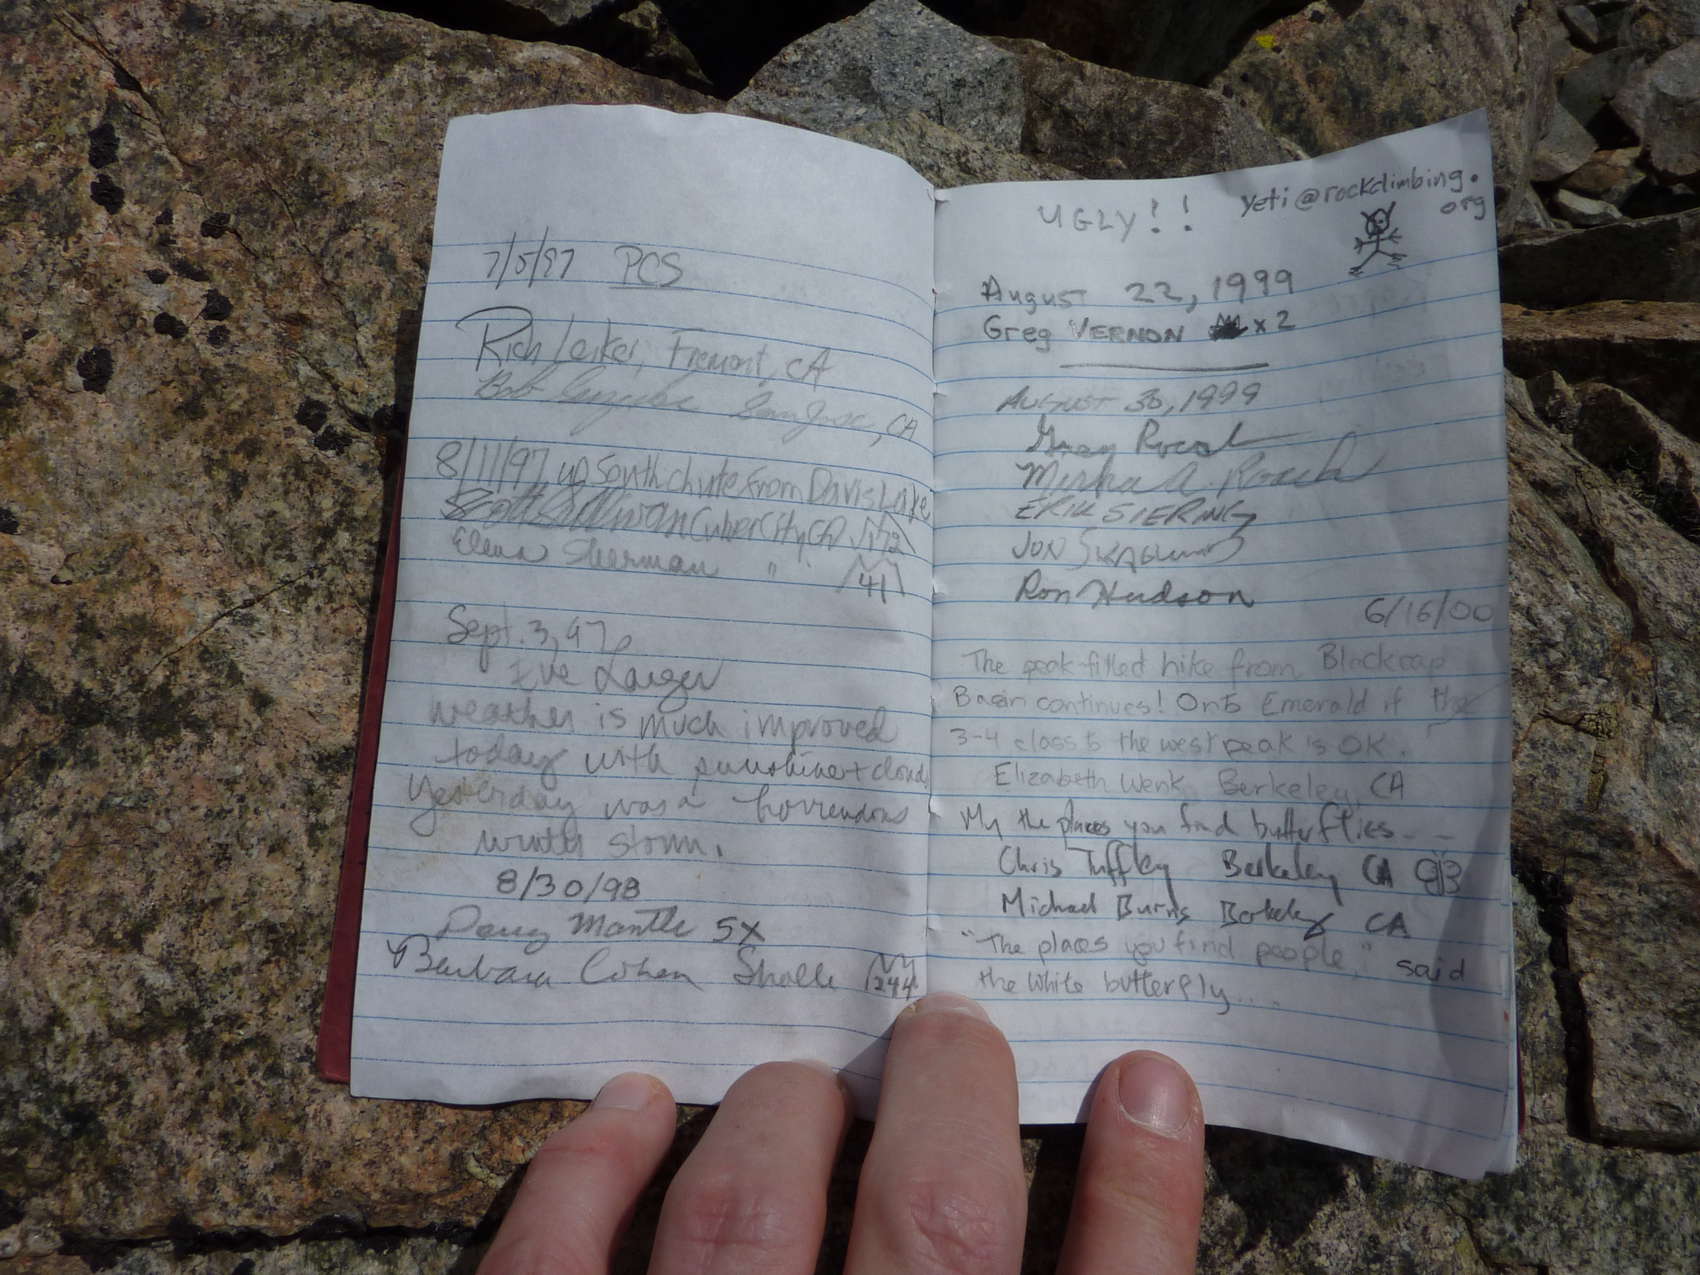 7/5/97 PCS
Rich Leiker, Fremont, CA
Bob San Jose, CA
8/11/97 up South chute from Davis Lake
Culver City CA 172
Elena Sherman " 41
Sept. 3, 97
Eve Laeger
Weather is much improved
today with sunshine + clouds
Yesterday was a horrendous
winter storm.
8/30/98
Doug Mantle 5X
Barbara Cohen Sholle 244
UGLY!! yeti@rockclimbing.
org
August 22, 1999
Greg VERNON x2
AUGUST 30, 1999
Roach
A. Roach
ERIK SIERING
JON
Ron Hudson
6/16/00
The peak-filled hike from Blackcap
Basin continues! Onto Emerald if the
3-4 class to the west peak is OK.
Elizabeth Wenk, Berkeley, CA
My the places you find butterflies...
Chris Tuffley Berkeley CA
Michael Burns Berkeley CA
"The places you find people," said
the white butterfly....